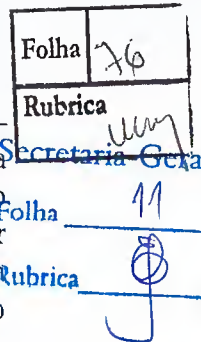 Folha 76
Rubrica
Secretaria Gera
Folha 11
r
Rubrica
o